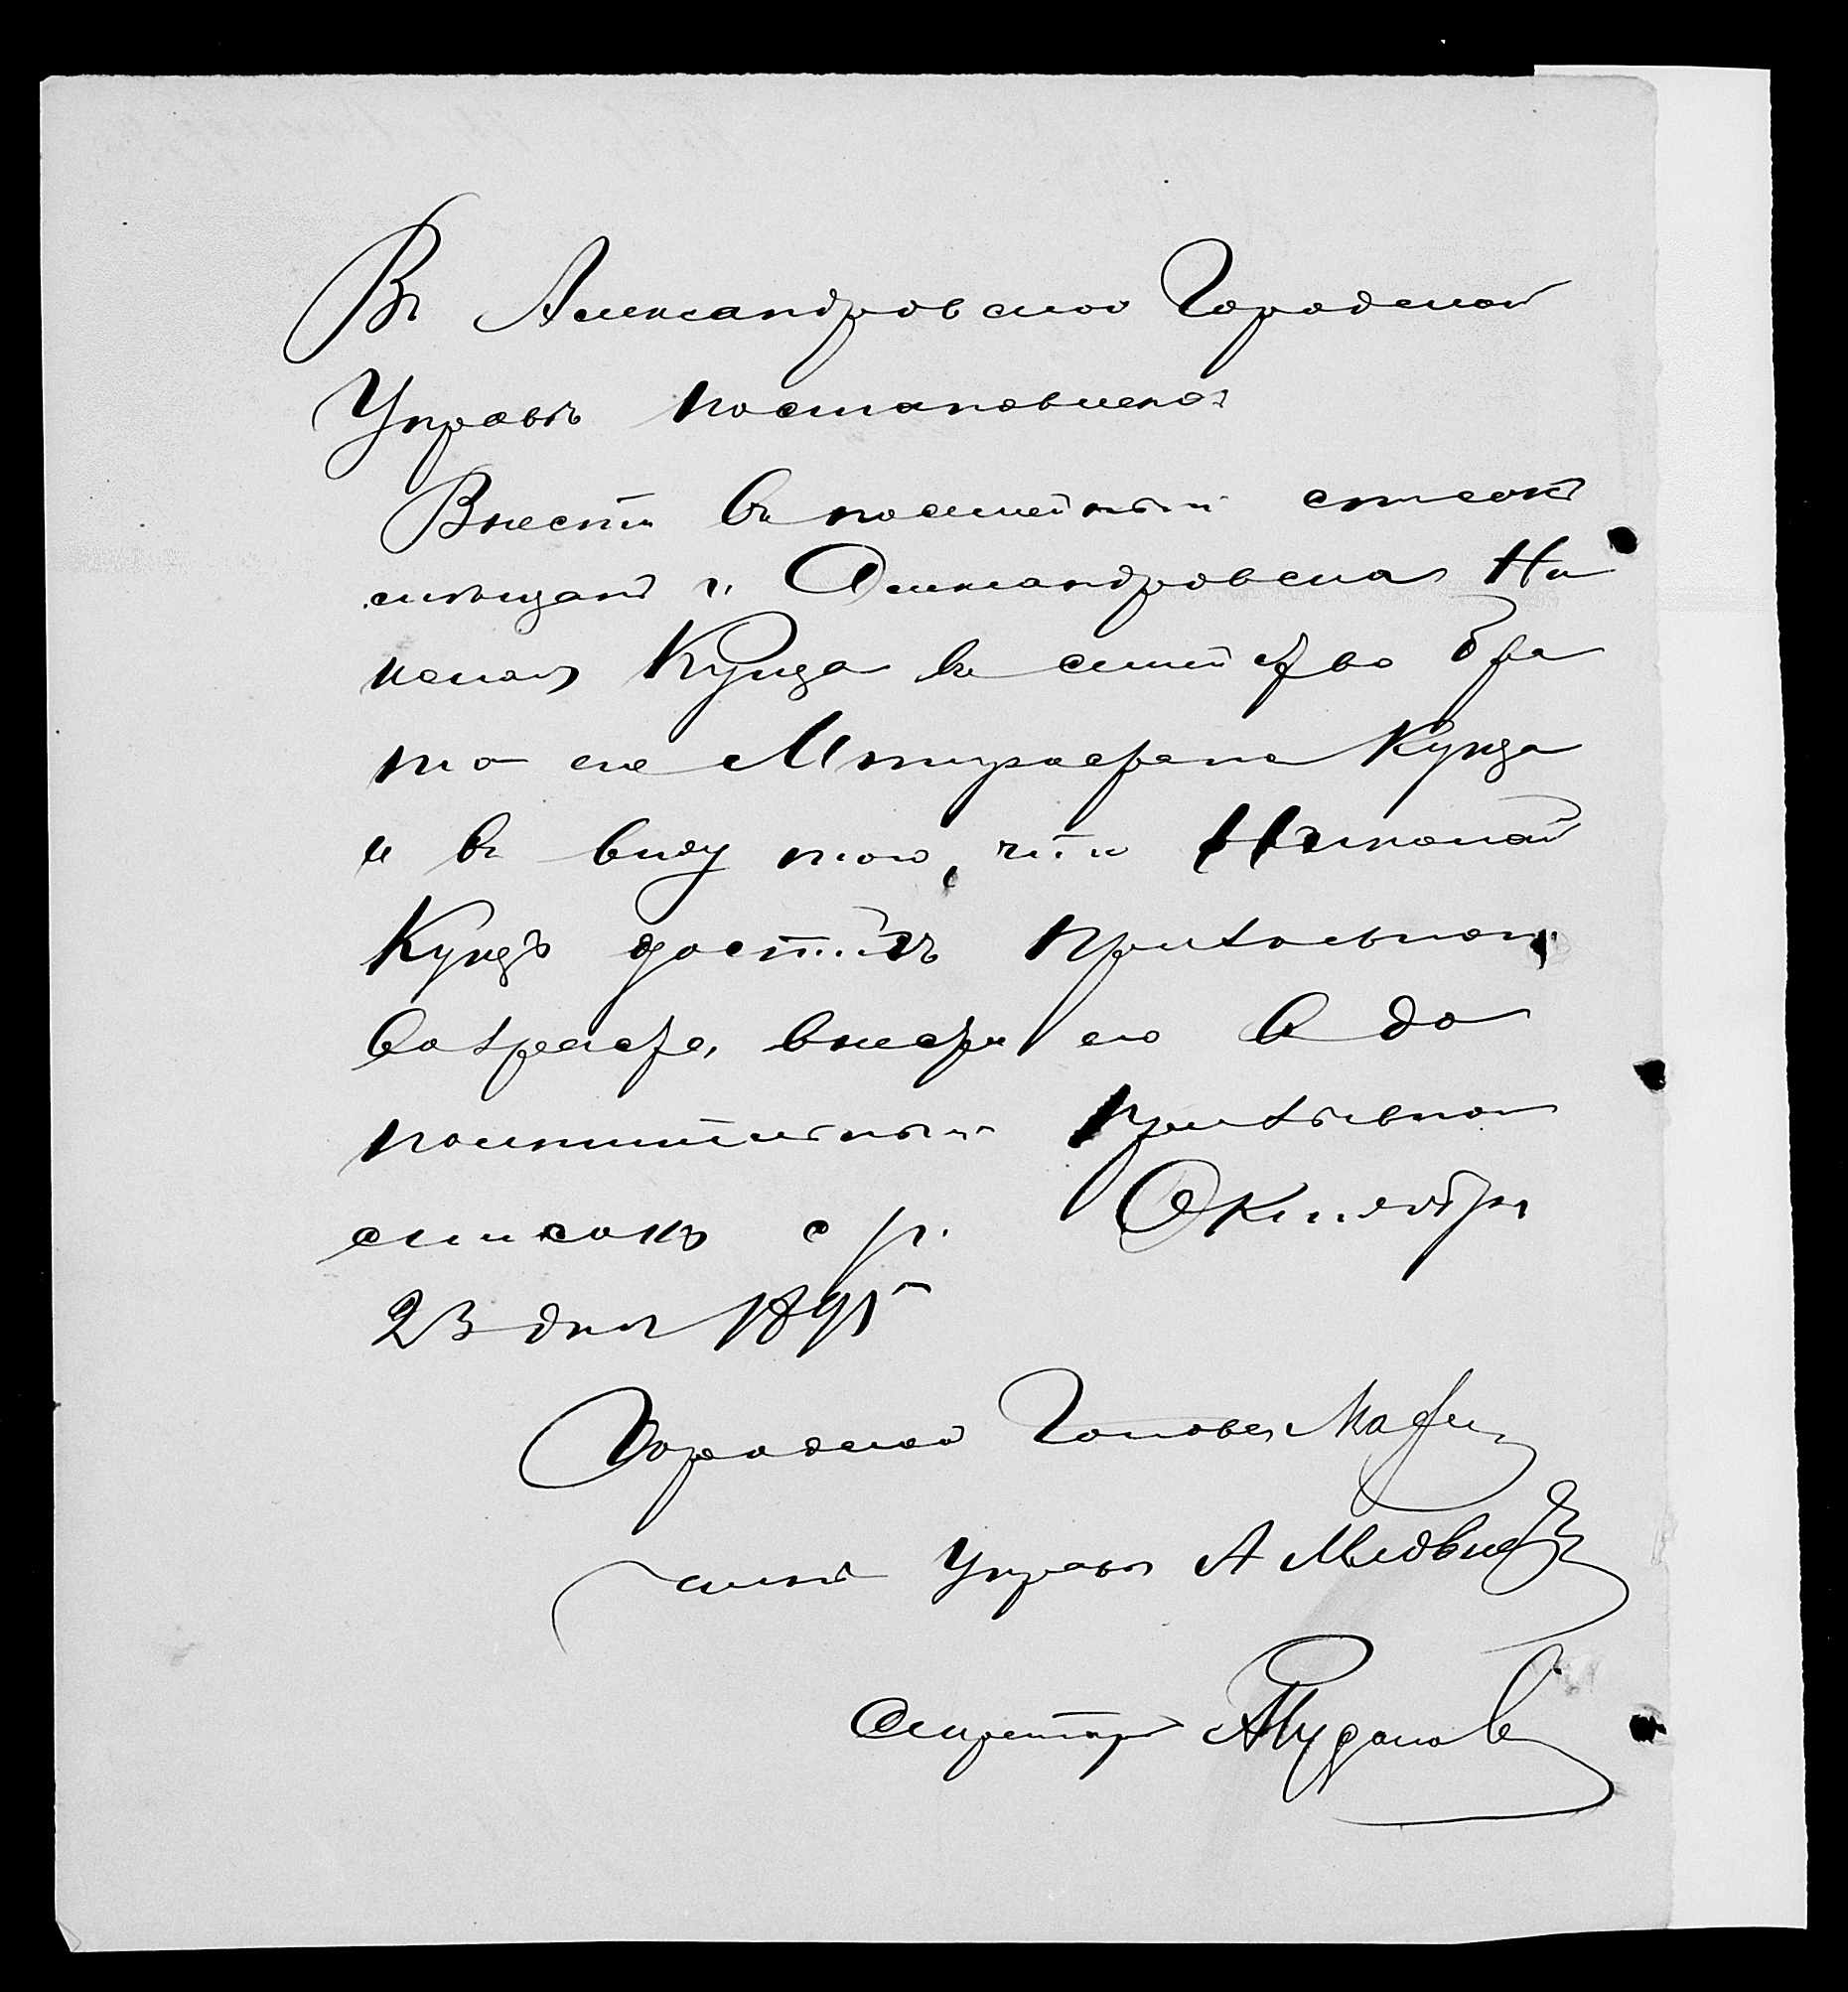 Въ Александровской Городской
Управѣ постановлено:
Внести въ посемейный списокъ
мѣщанъ г. Александровска Ни
колая Кунда въ семейство бра
та его Митрофана Кунда
и въ виду того, что Николай
Кундъ достигъ призывнаго
возраста, внести его въ до
полнительный призывной
списокъ с/г. Октября
23 дня 1895
Городской Голова
Членъ Управы А Медвѣ
Секретарь